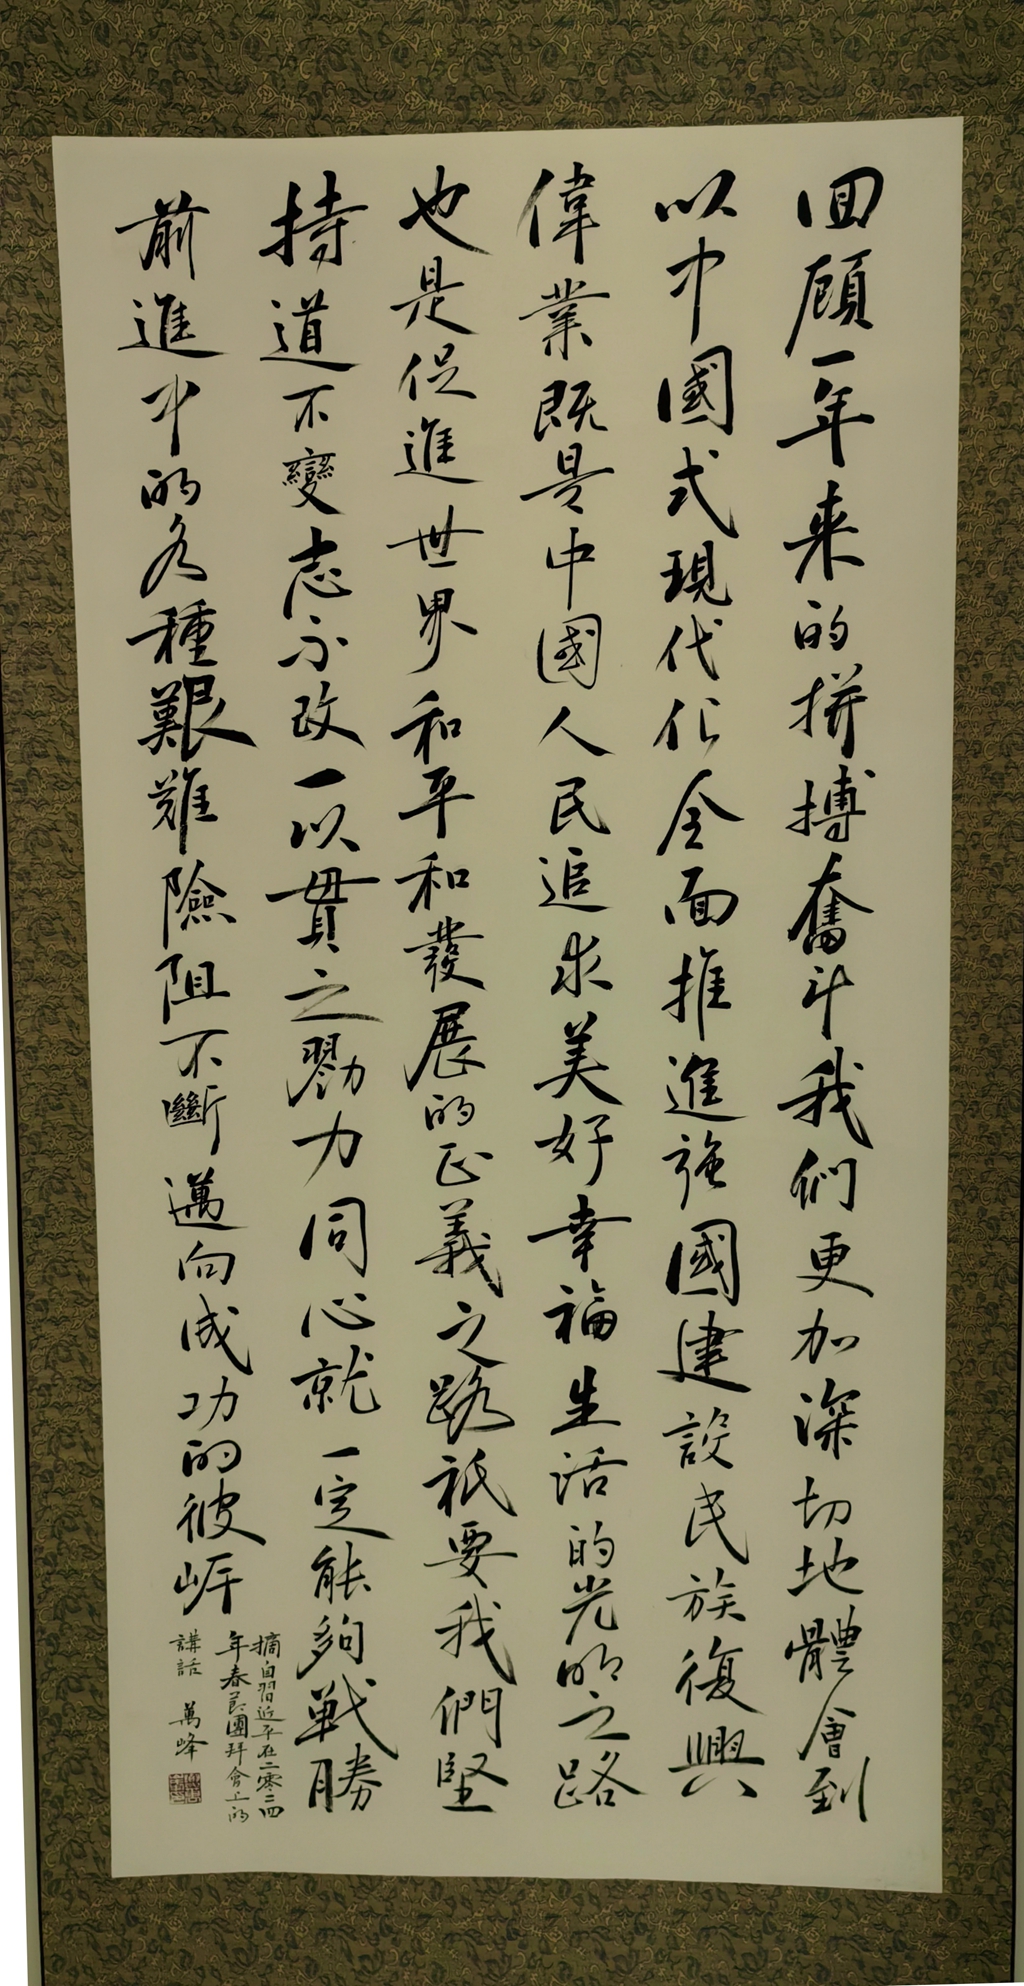 回顧一年来的拼搏奮斗我們更加深切地體會到
以中國式現代化全面推進强國建設民族復興
偉業既是中國人民追求美好幸福生活的光明之路
也是促進世界和平和發展的正義之路祇要我們堅
持道不變志不改一以貫之勠力同心就一定能夠戰勝
前進中的各種艱難險阻不斷邁向成功的彼岸
摘自習近平在二零二四
年春節團拜會上的
講話 萬峰